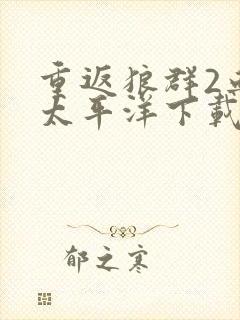 重返狼群2
太平洋下載
郁之寒